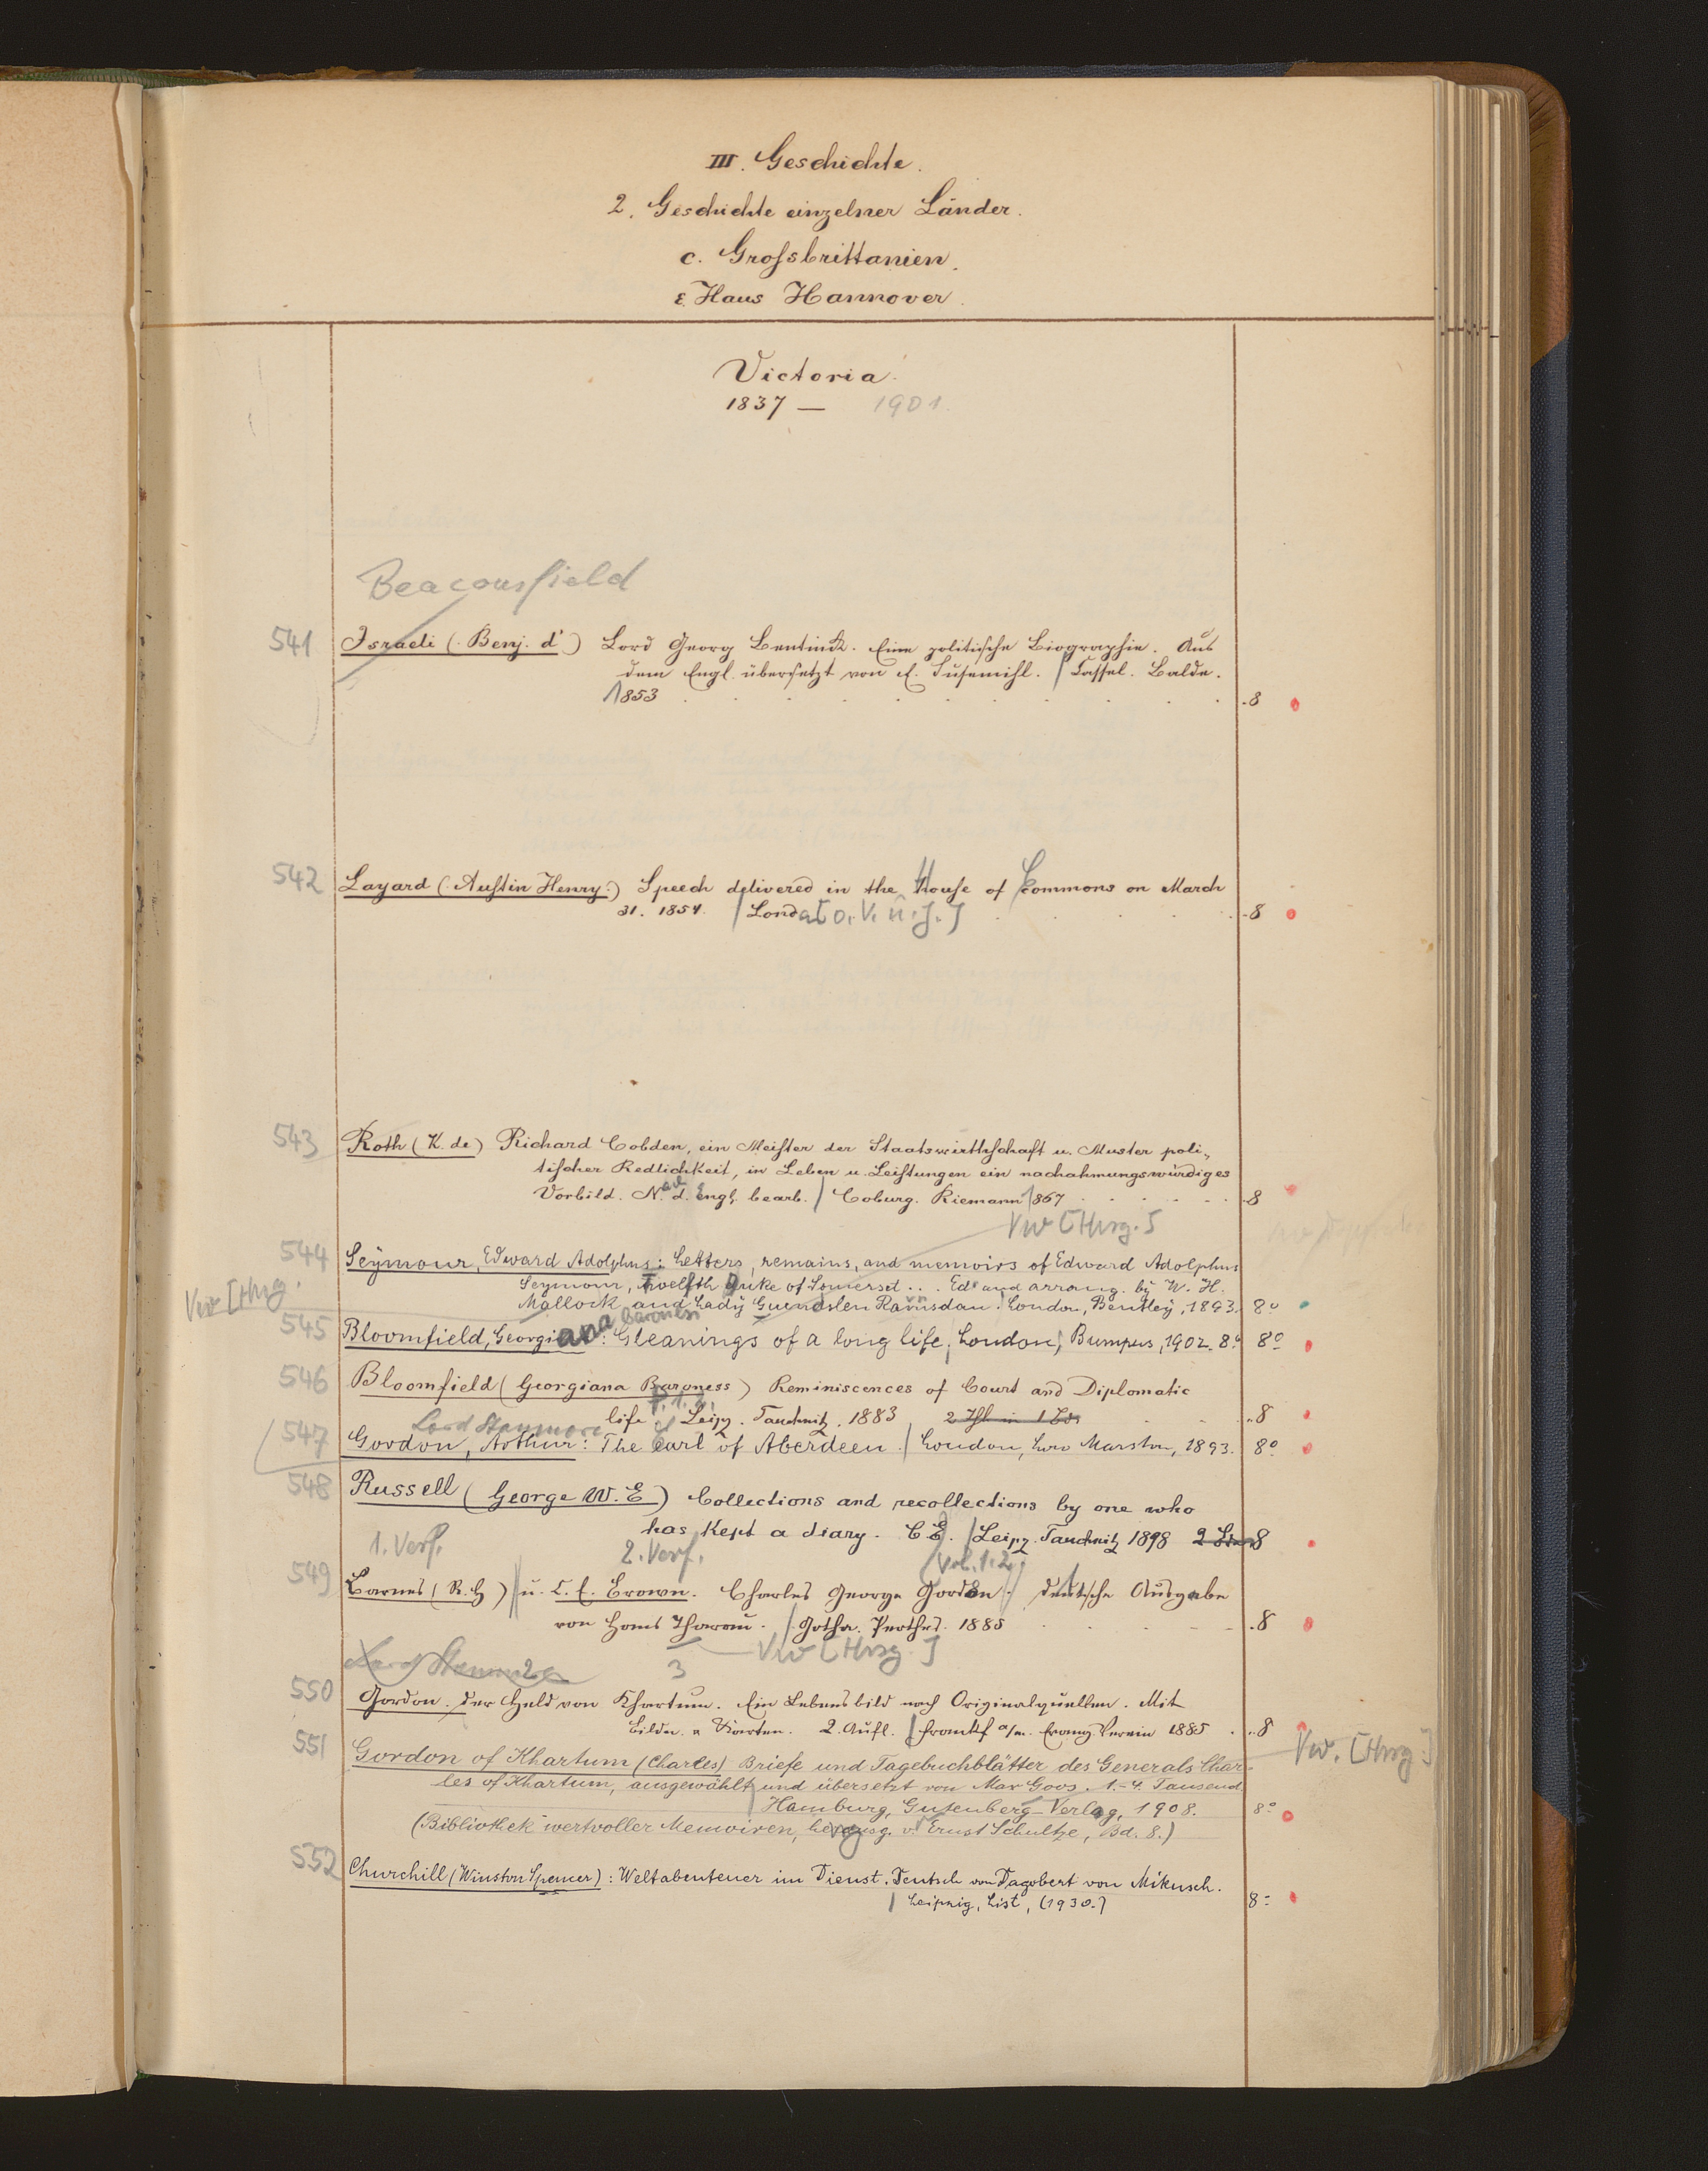 III. Geschichte.
2. Geschichte einzelner Länder.
c. Grossbrittanien.
ε. Haus Hannover.
Victoria.
1837 — 1901.
Beaconsfield
541 Israeli (. Benj. d'.) Lord Georg Bentinck. Eine politische Biographie. Aus
dem Engl. übersetzt von E. Susemihl. / Cassel. Balde.
1853 .8
542 Layard (. Austin Henry.) Speech delivered in the House of Commons on March
31. 1854. / Lond. [o. V. u. J.] .8
543 Roth (K. de) Richard Cobden, ein Meister der Staatswirthschaft u. Muster poli-
tischer Redlichkeit, in Leben u. Leistungen ein nachahmungswürdiges
Vorbild. Nach d. Engl. bearb. / Coburg. Riemann 1867 .8
Vw [Hrsg.]
544 Seymour, Edward Adolphus: Letters, remains, and memoirs of Edward Adolphus
Seymour, Twelfth Duke of Somerset ... Ed. and arrang. by W. H.
Vw [Hrsg.
Mallock and Lady Guendolen Ramsdan. London, Bentley, 1893. 8°
545 Bloomfield, Georgiana Baroness: Gleanings of a long life, London, Bumpus, 1902. 8° 8°
546 Bloomfield (Georgiana Baroness) Reminiscences of Court and Diplomatic
life T. 1. 2. Leipz. Tauchnitz. 1883 2 Thl in 1 Bd. .8
Lord Stanmore
547 Gordon, Arthur: The earl of Aberdeen. / London, Low Marston, 1893. 8°
548 Russell (George W. E) Collections and recollections by one who
has kept a diary. C E. / Leipz. Tauchnitz 1898 8
1. Verf. 2. Verf. Vol. 1. 2.
549 Barnes (R. H) u. C. E. Brown. Charles George Gordon. deutsche Ausgabe
von Hans Tharau. / Gotha. Perthes. 1885 .8
Vw [Hrsg.]
2 3
550 Gordon. der Held von Khartum. Ein Lebensbild nach Originalquellen. Mit
Bildn. u Karten. 2. Aufl. / Frankf a/m. Evang. Verein 1885 .8
551 Gordon of Khartum (Charles) Briefe und Tagebuchblätter des Generals Char- Vw. [Hrsg.]
les of Khartum, ausgewählt und übersetzt von Max Goos. 1.-4. Tausend
Hamburg, Gutenberg-Verlag, 1908. 8°
(Bibliothek wertvoller Memoiren, herausg. v. Ernst Schultze, Bd. 8.)
552 Churchill (Winston Spencer): Weltabenteuer im Dienst. Deutsch von Dagobert von Mikusch.
/ Leipzig, List, (1930.) 8°